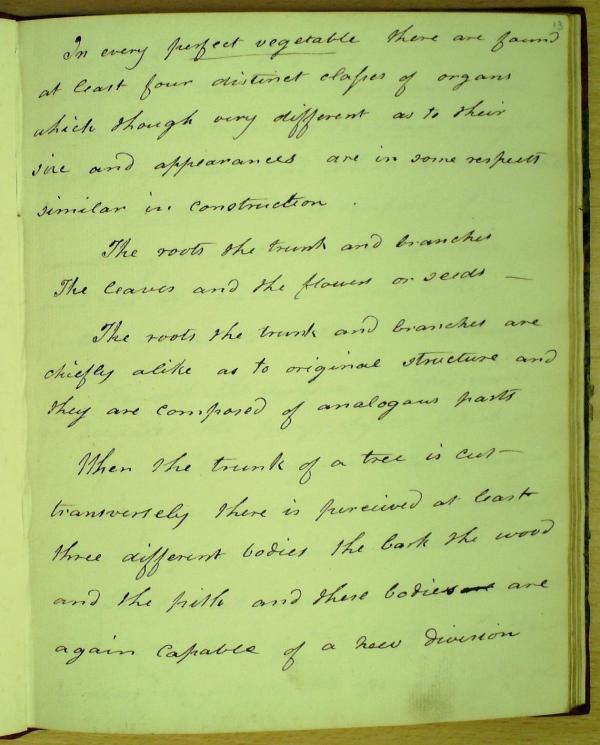 13
In every perfect vegetable there are found
at least four distinct claſses of organs
which though very different as to their
size and appearances are in some respects
similar in construction .
The roots the trunk and branches
The leaves and the flowers or seeds —
The roots the trunk and branches are
chiefly alike as to original structure and
they are composed of analogous parts
When the trunk of a tree is cut
transversely there is perceived at least
three different bodies the bark the wood
and the pith and these bodies are are
again capable of a new division